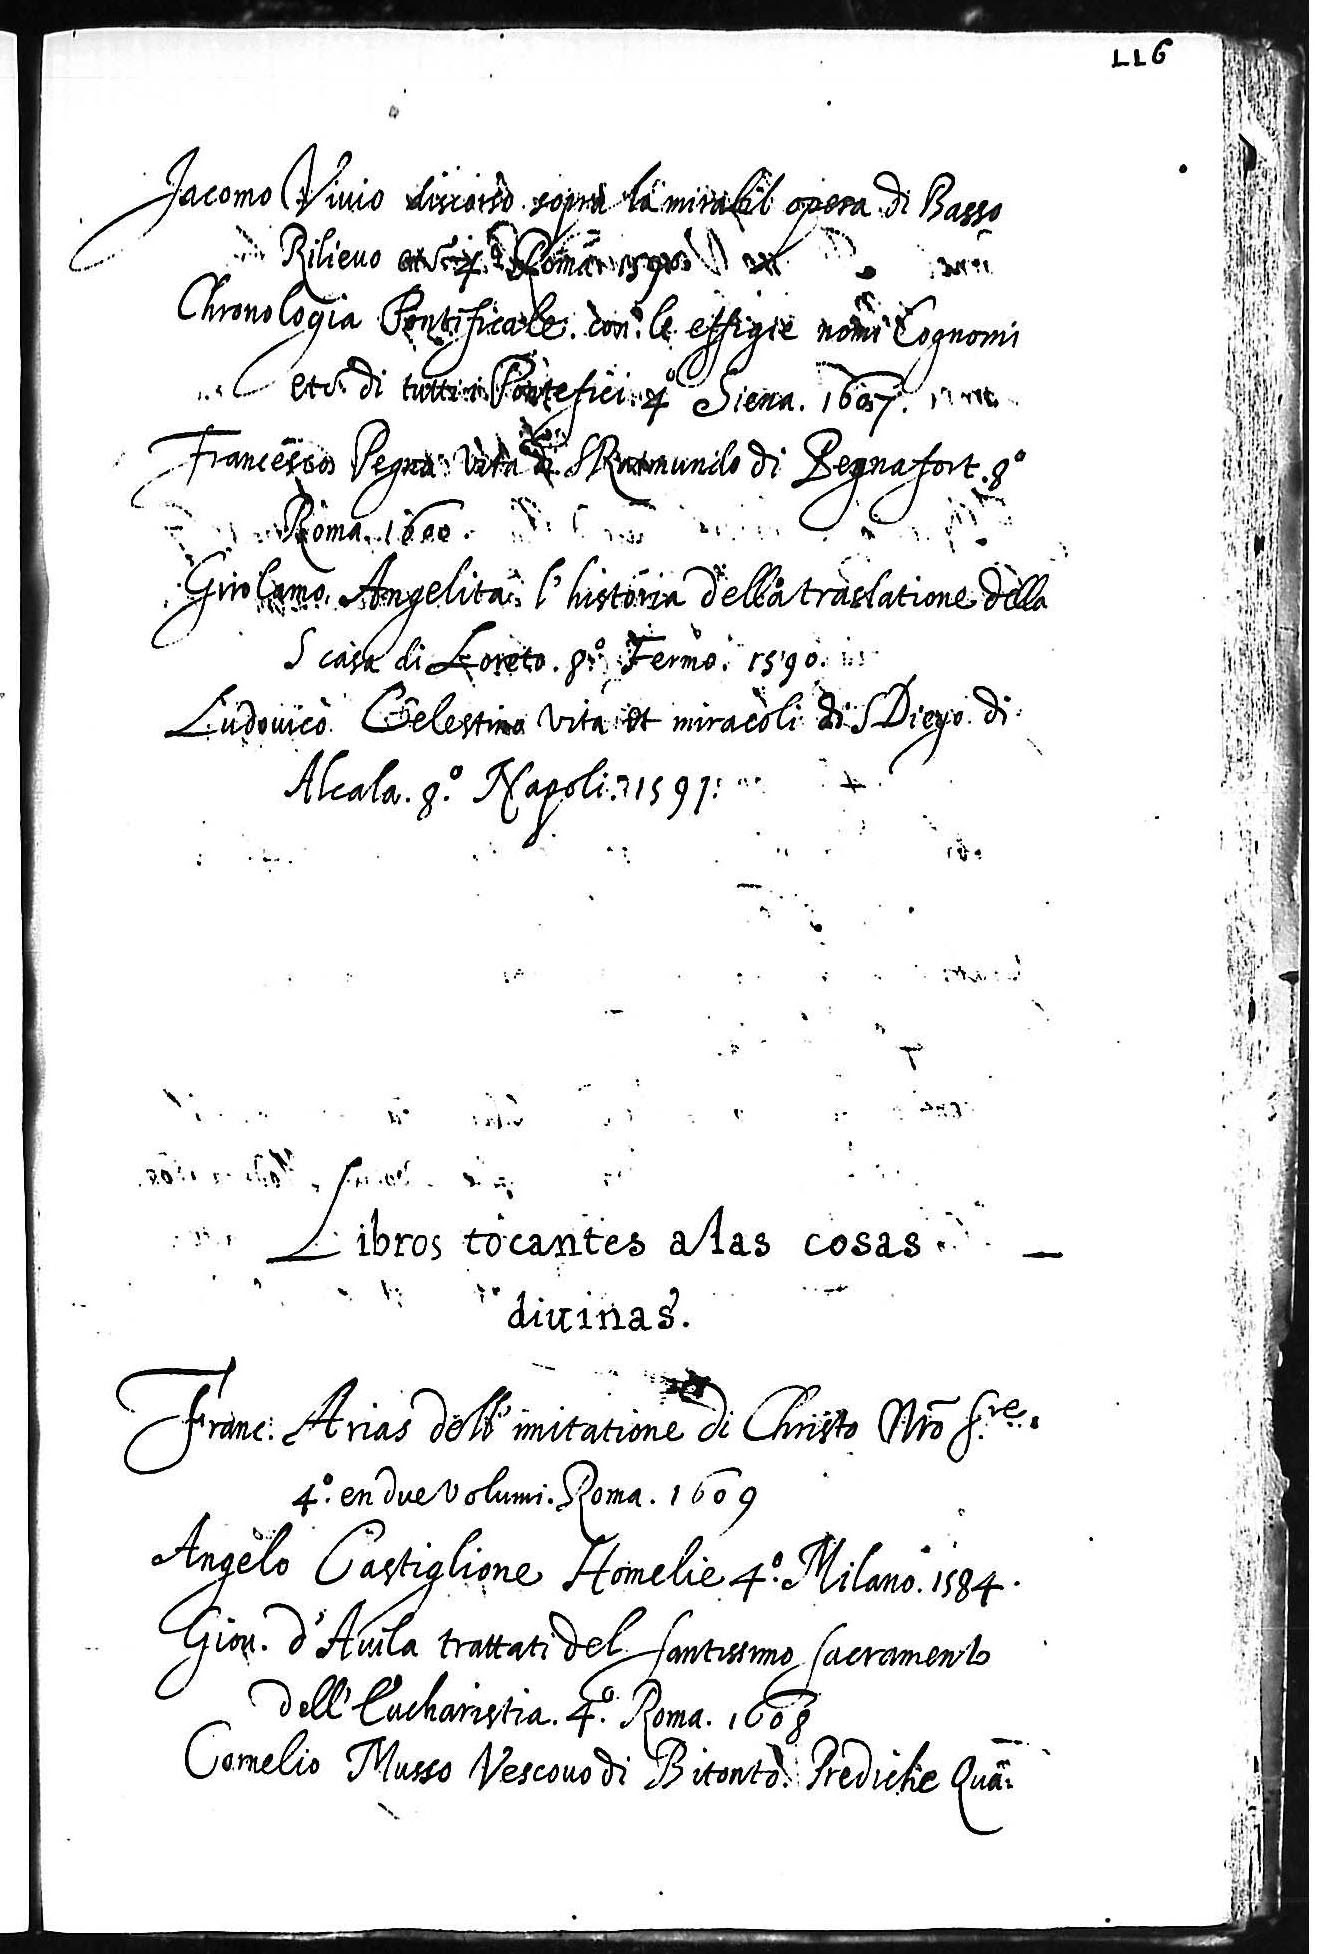 116
Jacomo Vivio discorso sopra la mirabil opera di Basso
Rilievo etc. 4º Roma 1590
Chronologia Pontificale con le effigie nomi Cognomi
etc. di tutti i Pontefici 4º Siena. 1607.
Francesco Pegna vita di S Raimundo di Pegnafort. 8º
Roma. 1600.
Girolamo Angelita l'historia della traslatione della
S casa di Loreto. 8º. Fermo. 1590.
Ludovico Celestino vita et miracoli di S Diego di
Alcala. 8º. Napoli. 1591.
Libros tocantes a las cosas
divinas.
Franc. Arias dell' imitatione di Christo Nrō S.re.
4º. en due volumi. Roma. 1609
Angelo Castiglione Homelie 4º. Milano. 1584.
Giou. d'Auila trattati del santissimo sacramento
dell' Eucharistia. 4º. Roma. 1608
Cornelio Musso Vescouo di Bitonto. Prediche Qua-